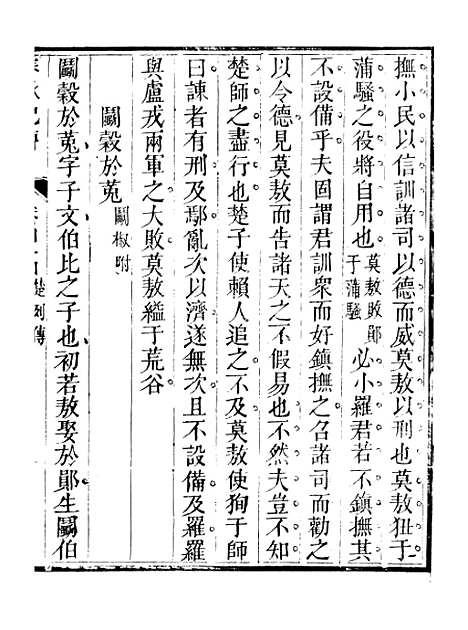 撫小民以信訓諸司以德而威莫敖以刑也莫敖狃于
蒲騷之役將自用也莫敖敗鄖于蒲騷必小羅君若不鎮撫其
不設備乎夫固謂君訓衆而好鎮撫之召諸司而勸之
以令德見莫敖而告諸天之不假易也不然夫豈不知
楚師之盡行也楚子使賴人追之不及莫敖使狥于師
曰諫者有刑及鄢亂次以濟遂無次且不設備及羅羅
與盧戎兩軍之大敗莫敖縊于荒谷
鬭穀於菟鬭椒附
鬭穀於菟字子文伯比之子也初若敖娶於鄖生鬭伯
楚列傳